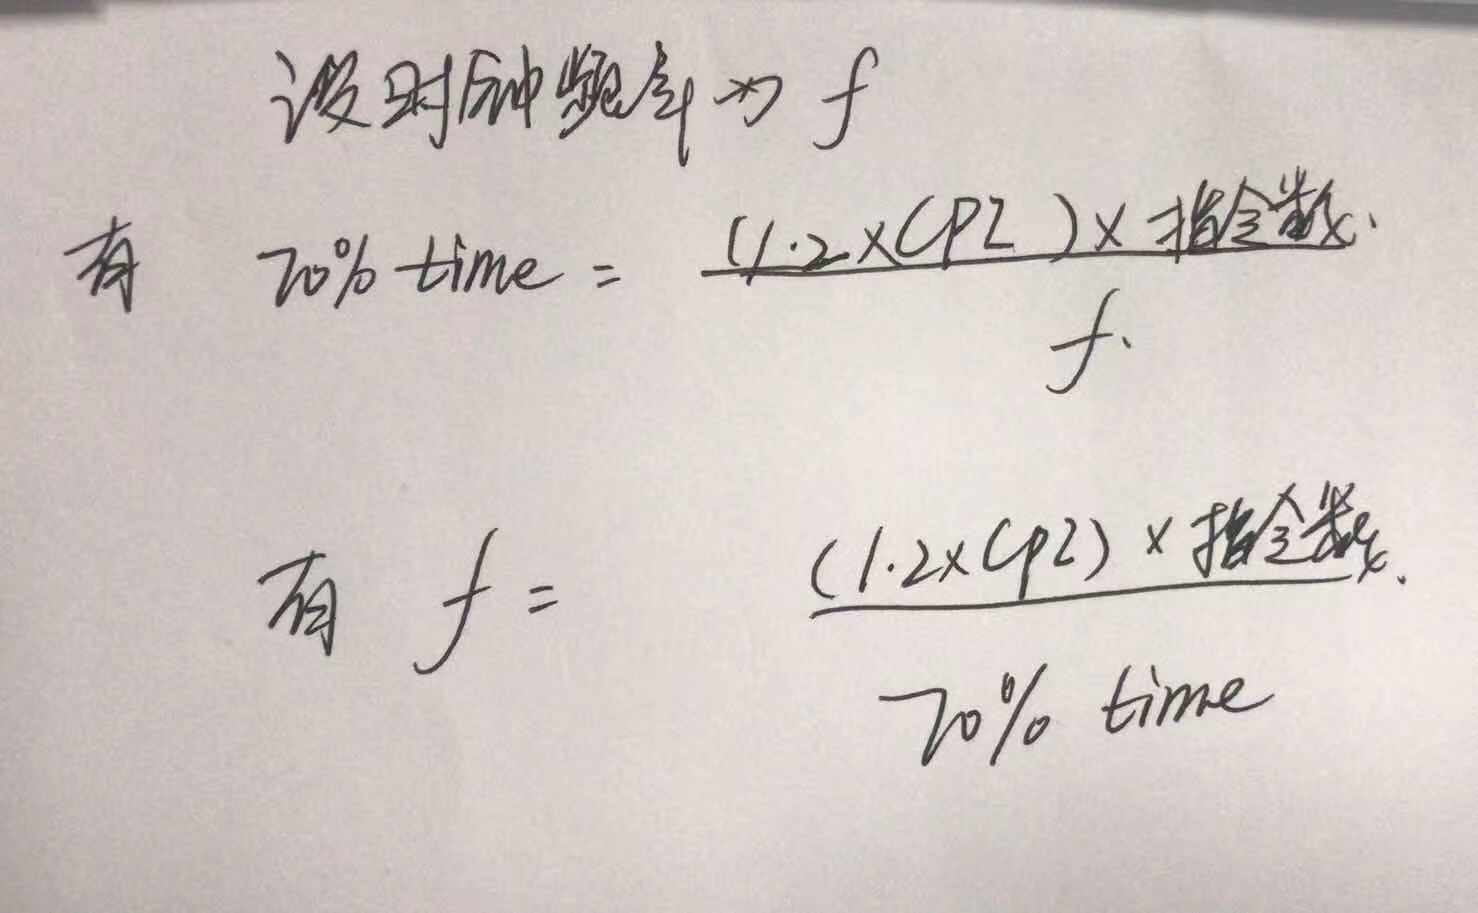 设时钟频率为 f
有 70% time = (1.2×CPI)×指令数.
f.
有 f = (1.2×CPI)×指令数.
70% time